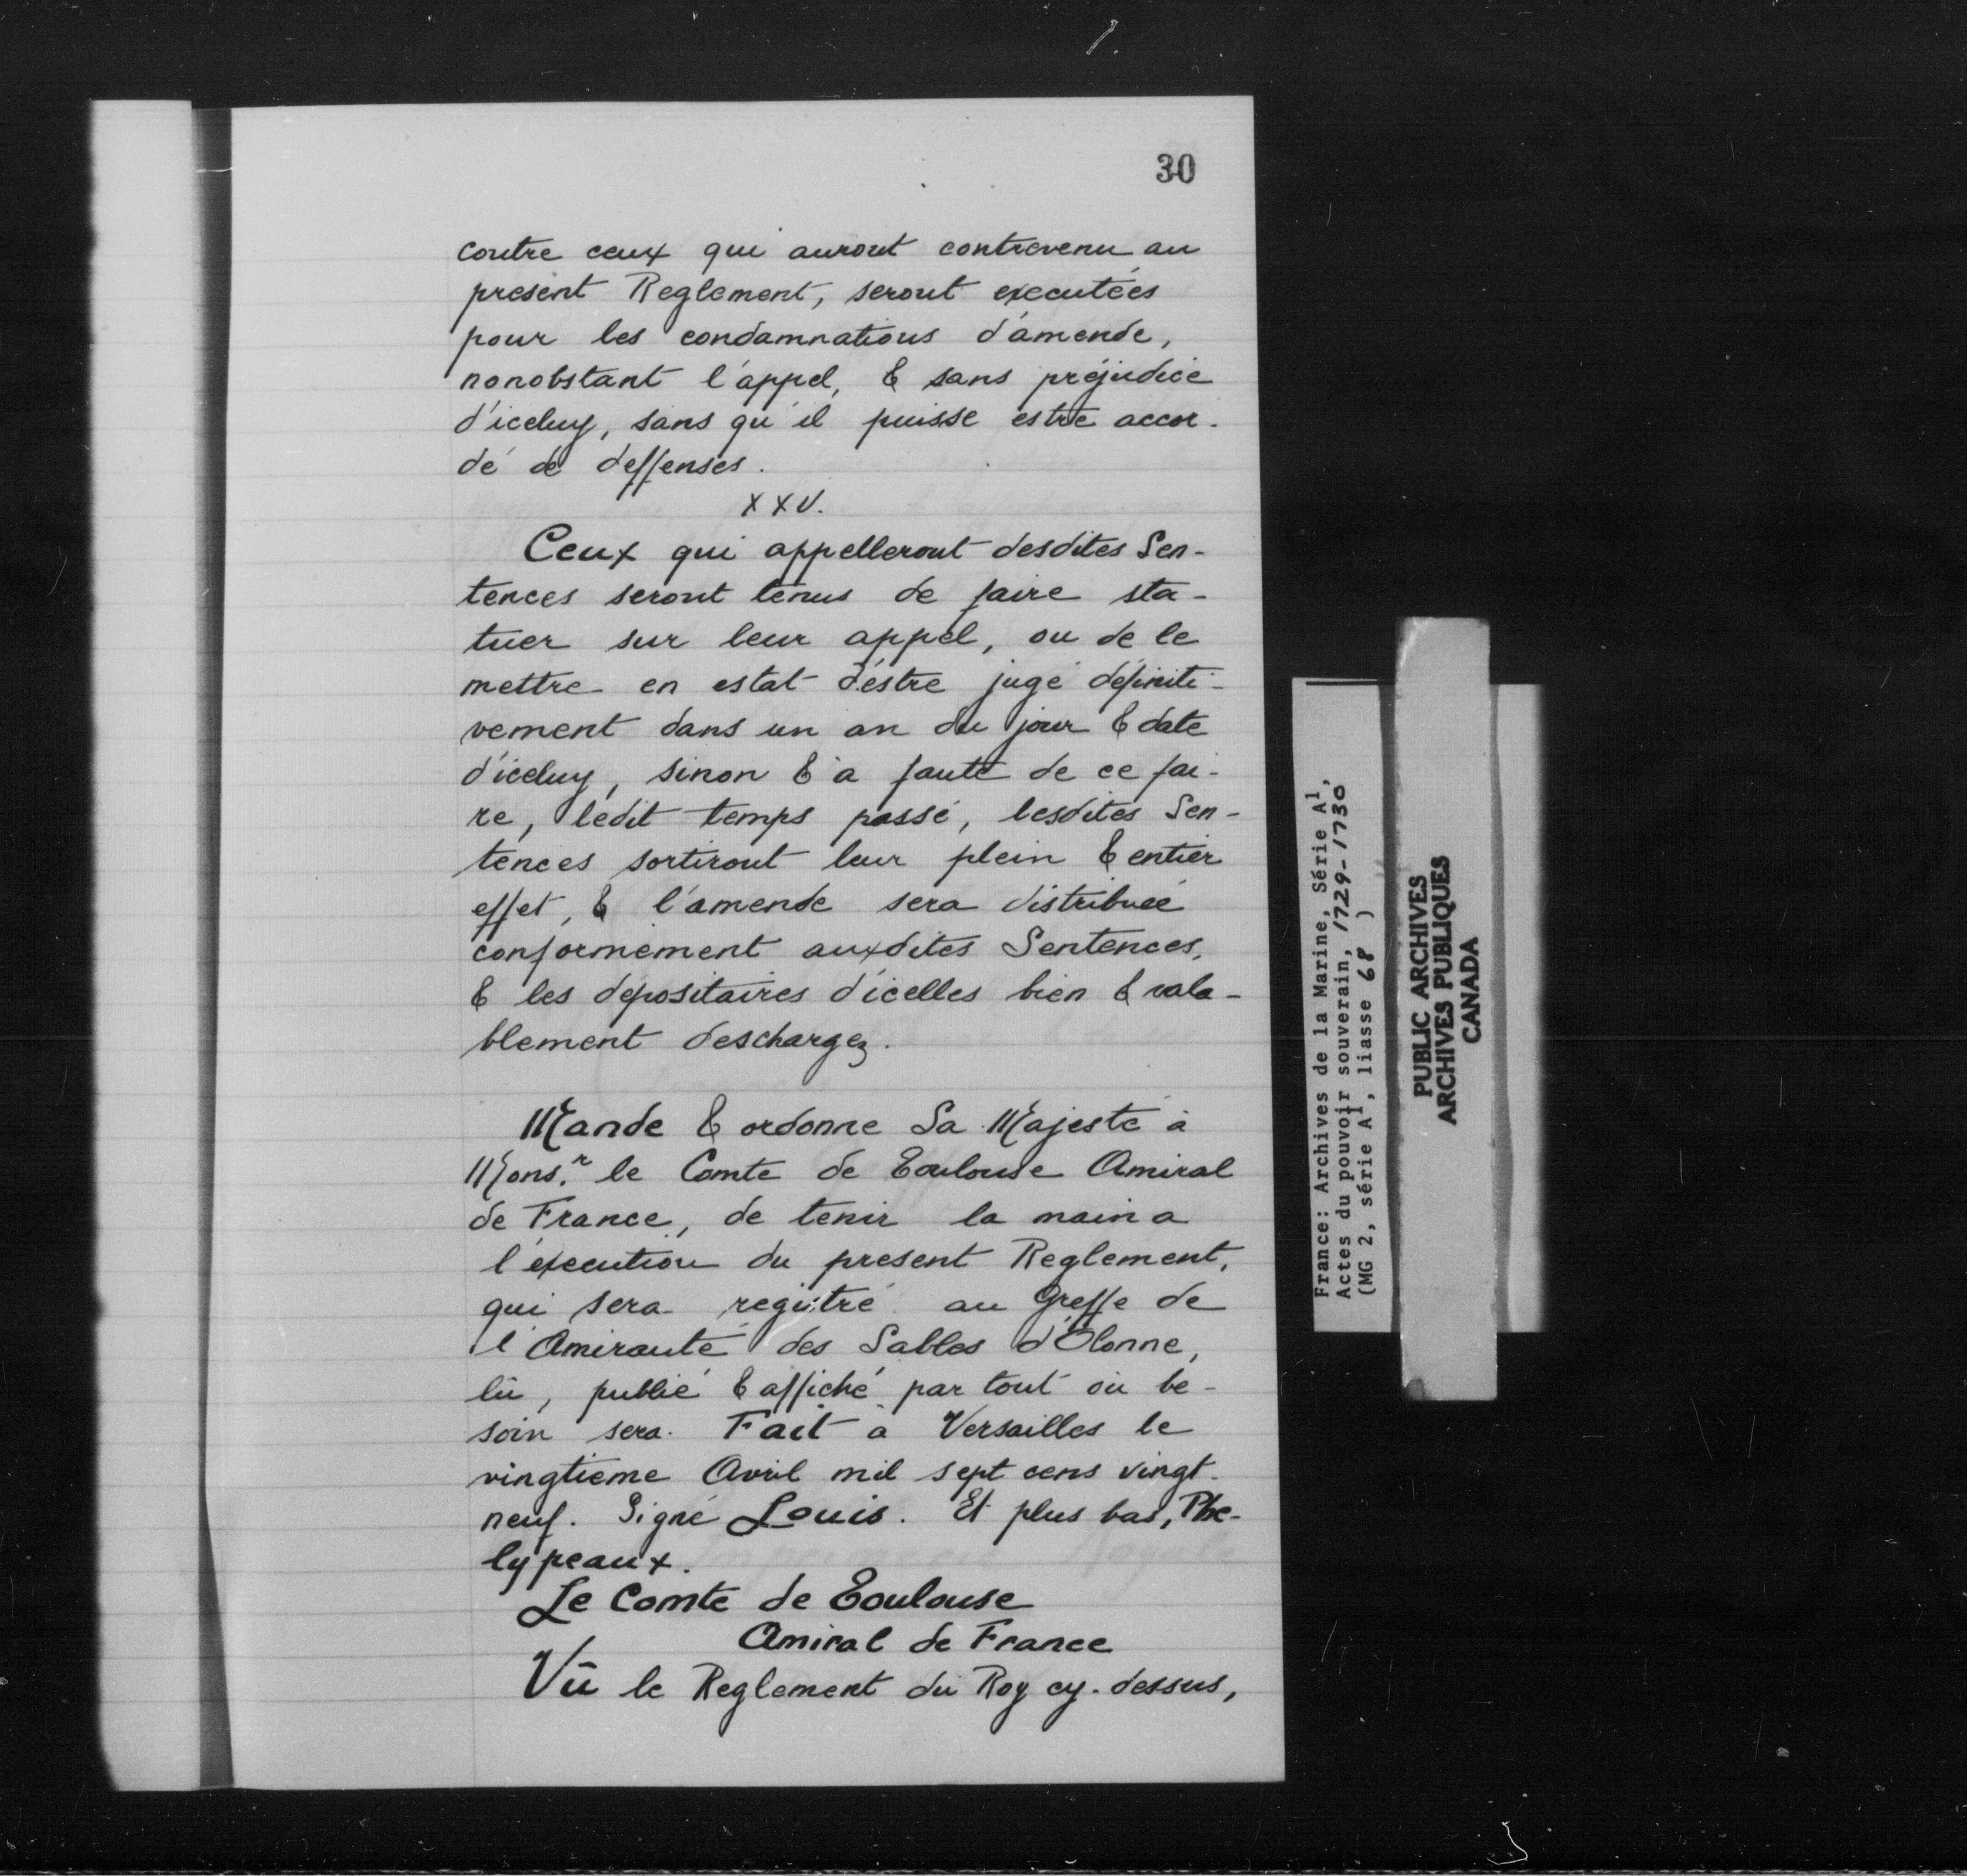 30
contre ceux qui auront contrevenu au
present Reglement, seront executées
pour les condamnations d'amende,
nonobstant l'appel, & sans préjudice
d'iceluy, sans qu'il puisse estre accor-
dé de deffenses.
XXV.
Ceux qui appelleront desdites Sen-
tences seront tenus de faire sta-
tuer sur leur appel, ou de le
mettre en estat d'estre jugé définiti-
vement dans un an du jour & date
d'iceluy, sinon & à faute de ce fai-
re, ledit temps passé, lesdites Sen-
tences sortiront leur plein & entier
effet, & l'amende sera distribuée
conformément auxdites Sentences,
& les dépositaires d'icelles bien & vala-
blement deschargez.
Mande & ordonne Sa Majesté à
Mons.r le Comte de Toulouse Amiral
de France, de tenir la main a
l'execution du present Reglement,
qui sera registré au Greffe de
l'Amirauté des Sables d'Olonne,
lû, publié & affiché par tout où be-
soin sera. Fait à Versailles le
vingtieme Avril mil sept cens vingt-
neuf. Signé Louis. Et plus bas, Phe-
lypeaux.
Le Comte de Toulouse
Amiral de France
Vû le Reglement du Roy cy-dessus,
France: Archives de la Marine, Série A1,
Actes du pouvoir souverain, 1729-1730
(MG 2, série A1, liasse 68 )
PUBLIC ARCHIVES
ARCHIVES PUBLIQUES
CANADA